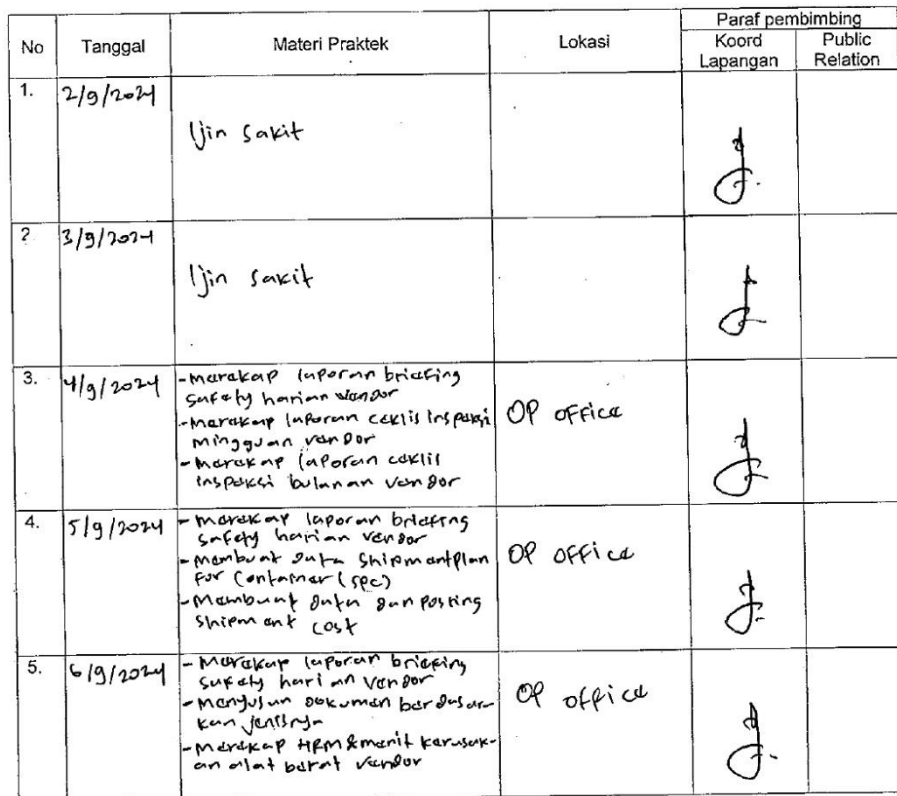 No Tanggal Materi Praktek Lokasi Paraf pembimbing
Koord Lapangan Public Relation
1. 2/9/2024
Ijin sakit
2. 3/9/2024
Ijin sakit
3. 4/9/2024 -Merekap laporan briefing
safety harian vendor
-Merekap laporan ceklis inspeksi OP office
mingguan vendor
-Merekap laporan ceklis
inspeksi bulanan vendor
4. 5/9/2024 -Merekap laporan briefing
safety harian vendor
-Membuat data shipmentplan OP office
for container (spc)
-Membuat data dan posting
shipment cost
5. 6/9/2024 -Merekap laporan briefing
safety harian vendor
-Menyusun dokumen berdasar- OP office
kan jenisnya
-Merekap HRM & merit kerusak-
an alat berat vendor